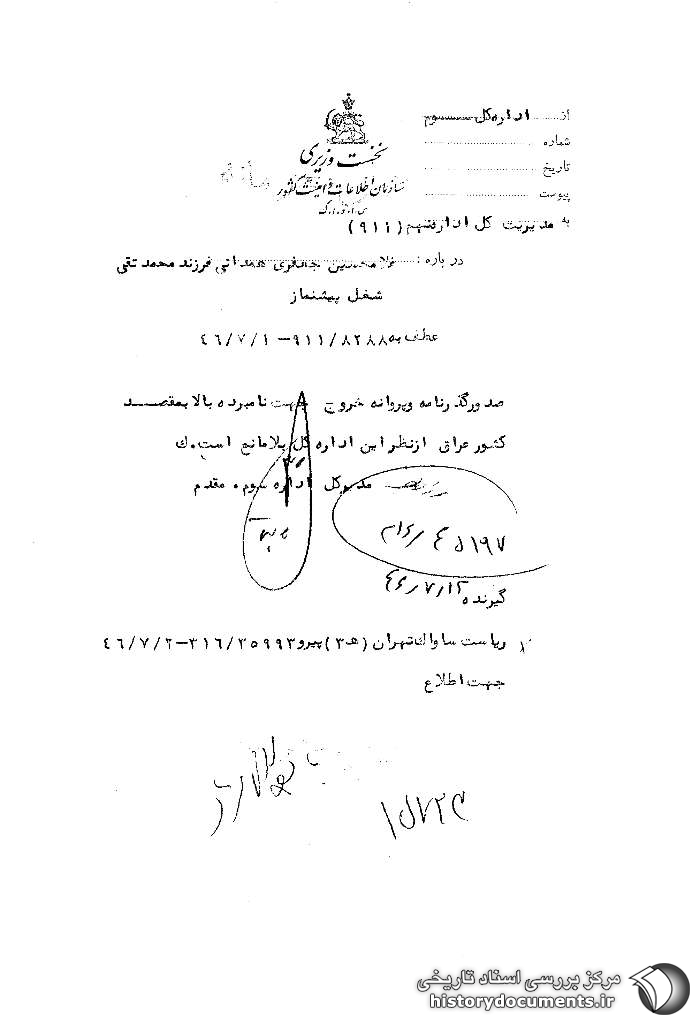 از اداره کل سوم
شماره
تاریخ
پیوست
نخست وزیری
سازمان اطلاعات و امنیت کشور
س.ا.و.ا.ک
به مدیریت کل اداره نهم (۹۱۱)
در باره : غلامحسین جعفری همدانی فرزند محمد تقی
شغل پیشنماز
عطف به ۹۱۱/۸۲۸۸-۴۶/۷/۱
صدور گذرنامه و پروانه خروج جهت نامبرده بالا بمقصد
کشور عراق از نظر این اداره کل بلامانع است. ك
مدیر کل اداره سوم. مقدم
گیرنده
۴۶/۷/۱۲
ریاست ساواك تهران (ه‍ ۳) پیرو ۳۱۶/۲۵۹۹۳-۴۶/۷/۲
جهت اطلاع
مرکز بررسی اسناد تاریخی
historydocuments.ir